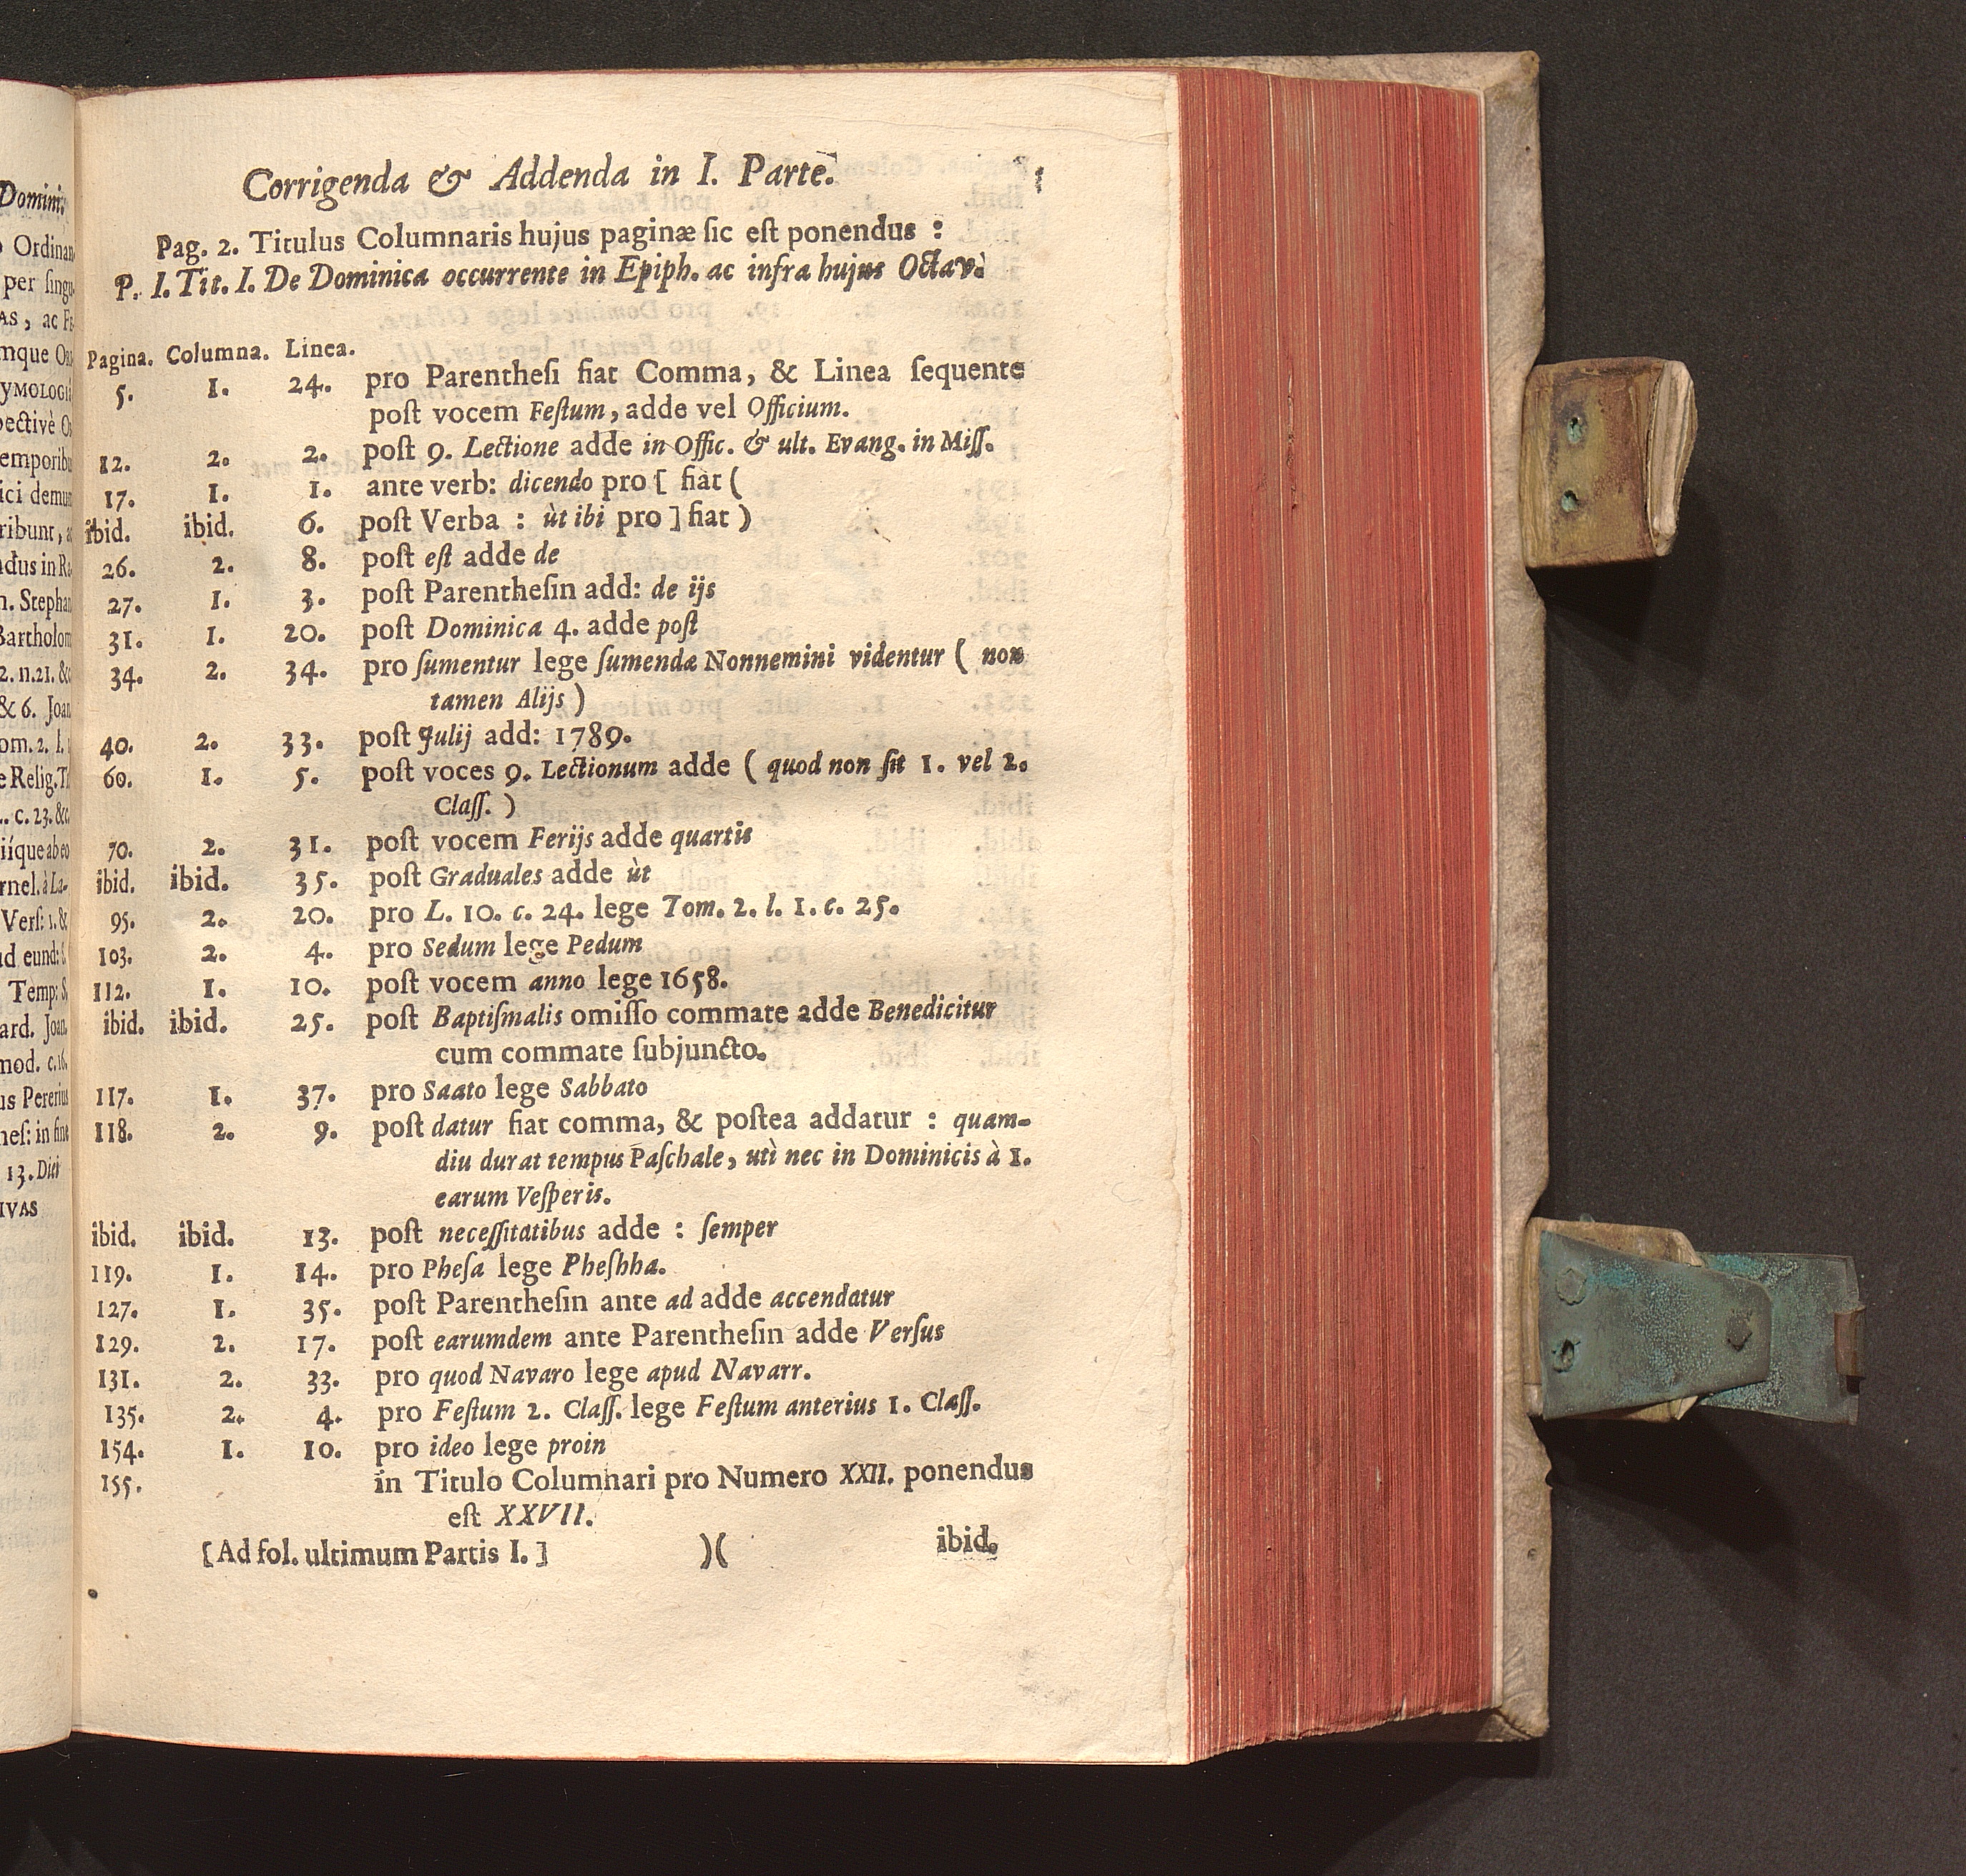 Domini
Ordinan
per singu
AS, ac F
mque O
YMOLOGI
pectivè O
emporibu
ici demum
ribunt, a
adus in R
n. Stephan
Bartholom
2. n. 21. &c
& 6. Joan
om. 2. l.
e Relig. T
. c. 23. &c.
iíque ab eo
rnel. à La-
Vers: 1. &
ud eund: S.
Temp: S.
ard. Joan.
mod. c. 16.
us Pererius
nes: in fine
13. Diei
IVAS
Corrigenda & Addenda in I. Parte.
Pag. 2. Titulus Columnaris hujus paginæ sic est ponendus :
P. I. Tit. I. De Dominica occurrente in Epiph. ac infra hujus Octav.
Pagina. Columna. Linea.
5. 1. 24. pro Parenthesi fiat Comma, & Linea sequente
post vocem Festum, adde vel Officium.
12. 2. 2. post 9. Lectione adde in Offic. & ult. Evang. in Miss.
17. 1. 1. ante verb: dicendo pro [ fiàt (
ibid. ibid. 6. post Verba : ùt ibi pro ] fiat )
26. 2. 8. post est adde de
27. 1. 3. post Parenthesin add: de ijs
31. 1. 20. post Dominica 4. adde post
34. 2. 34. pro sumentur lege sumendæ Nonnemini videntur ( non
tamen Alijs )
40. 2. 33. post Julij add: 1789.
60. 1. 5. post voces 9. Lectionum adde ( quod non sit 1. vel 2.
Class. )
70. 2. 31. post vocem Ferijs adde quartis
ibid. ibid. 35. post Graduales adde ùt
95. 2. 20. pro L. 10. c. 24. lege Tom. 2. l. 1. c. 25.
103. 2. 4. pro Sedum lege Pedum
112. 1. 10. post vocem anno lege 1658.
ibid. ibid. 25. post Baptismalis omisso commate adde Benedicitur
cum commate subjuncto.
117. 1. 37. pro Saato lege Sabbato
118. 2. 9. post datur fiat comma, & postea addatur : quam-
diu durat tempus Paschale, utì nec in Dominicis à 1.
earum Vesperis.
ibid. ibid. 13. post necessitatibus adde : semper
119. 1. 14. pro Phesa lege Pheshha.
127. 1. 35. post Parenthesin ante ad adde accendatur
129. 2. 17. post earumdem ante Parenthesin adde Versus
131. 2. 33. pro quod Navaro lege apud Navarr.
135. 2. 4. pro Festum 2. Class. lege Festum anterius 1. Class.
154. 1. 10. pro ideo lege proin
155. in Titulo Columnari pro Numero XXII. ponendus
est XXVII.
[Ad fol. ultimum Partis I.] )( ibid.